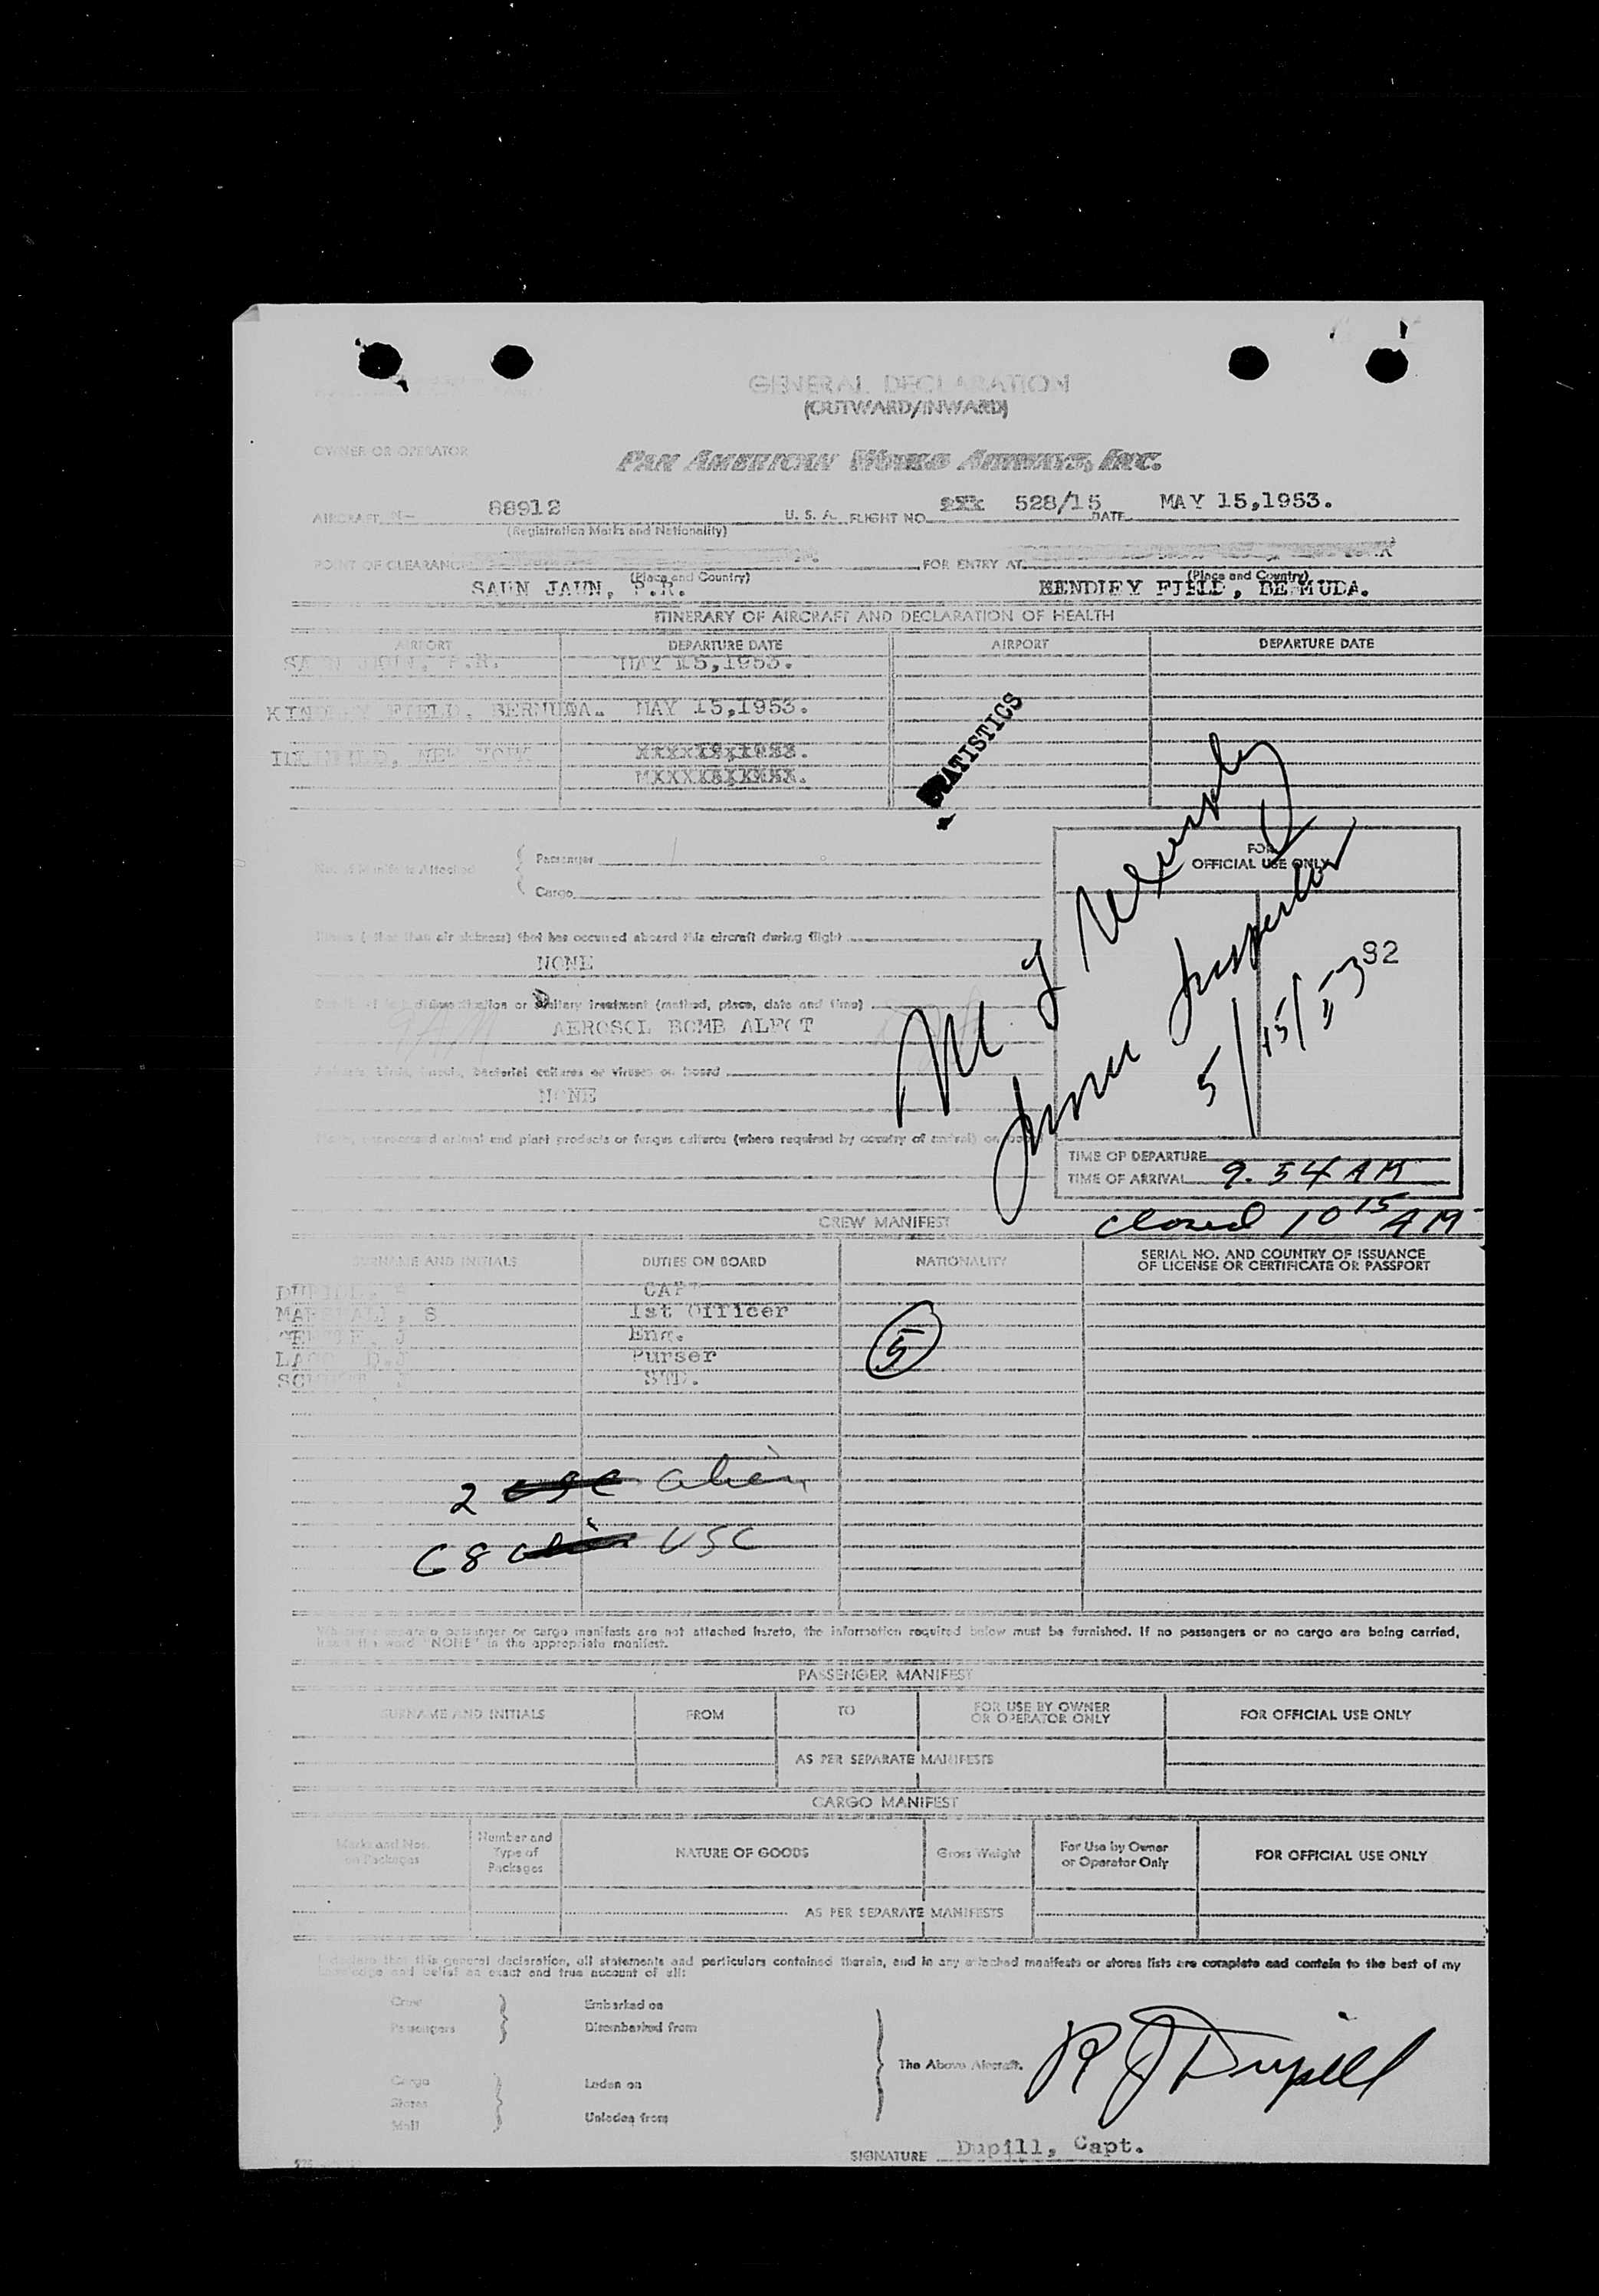 GENERAL DECLARATION
(OUTWARD/INWARD)
OWNER OR OPERATOR
PAN AMERICAN WORLD AIRWAYS, INC.
AIRCRAFT N- 88912 U. S. A. FLIGHT NO. 528/15 DATE MAY 15,1953.
(Registration Marks and Nationality)
POINT OF CLEARANCE FOR ENTRY AT
(Place and Country) (Place and Country)
SAUN JAUN, P.R. KENDIFY FIELD, BERMUDA.
ITINERARY OF AIRCRAFT AND DECLARATION OF HEALTH
AIRPORT DEPARTURE DATE AIRPORT DEPARTURE DATE
P.R. MAY 15,1953.
FIELD, BERMUDA. MAY 15,1953.
NEW YORK
STATISTICS
No. of Manifests Attached
Passenger 1
Cargo
FOR
OFFICIAL USE ONLY
M J Murphy
Immi Inspector
5/15/53
92
Illness (other than air sickness) that has occurred aboard this aircraft during flight
NONE
Details of last disinsectisation or sanitary treatment (method, place, date and time)
AEROSOL BOMB ALFOT
Animals, birds, insects, bacterial cultures or viruses on board
NONE
Plants, unprocessed animal and plant products or fungus cultures (where required by country of arrival) on board
TIME OF DEPARTURE
TIME OF ARRIVAL 9.54 AM
closed 10 15 AM
CREW MANIFEST
SURNAME AND INITIALS DUTIES ON BOARD NATIONALITY SERIAL NO. AND COUNTRY OF ISSUANCE
OF LICENSE OR CERTIFICATE OR PASSPORT
CAPT
MARSHALL, S 1st Officer
Eng. 5
Purser
STD.
2 usc alien
68 alien USC
Whenever separate passenger or cargo manifests are not attached hereto, the information required below must be furnished. If no passengers or no cargo are being carried,
insert the word "NONE" in the appropriate manifest.
PASSENGER MANIFEST
SURNAME AND INITIALS FROM TO FOR USE BY OWNER
OR OPERATOR ONLY FOR OFFICIAL USE ONLY
AS PER SEPARATE MANIFESTS
CARGO MANIFEST
Marks and Nos.
on Packages Number and
Type of
Packages NATURE OF GOODS Gross Weight For Use by Owner
or Operator Only FOR OFFICIAL USE ONLY
AS PER SEPARATE MANIFESTS
I declare that this general declaration, all statements and particulars contained therein, and in any attached manifests or stores lists are complete and contain to the best of my
knowledge and belief an exact and true account of all:
Crew Embarked on
Passengers Disembarked from
The Above Aircraft.
R J Dupill
Cargo Laden on
Stores
Mail Unladen from
SIGNATURE Dupill, Capt.